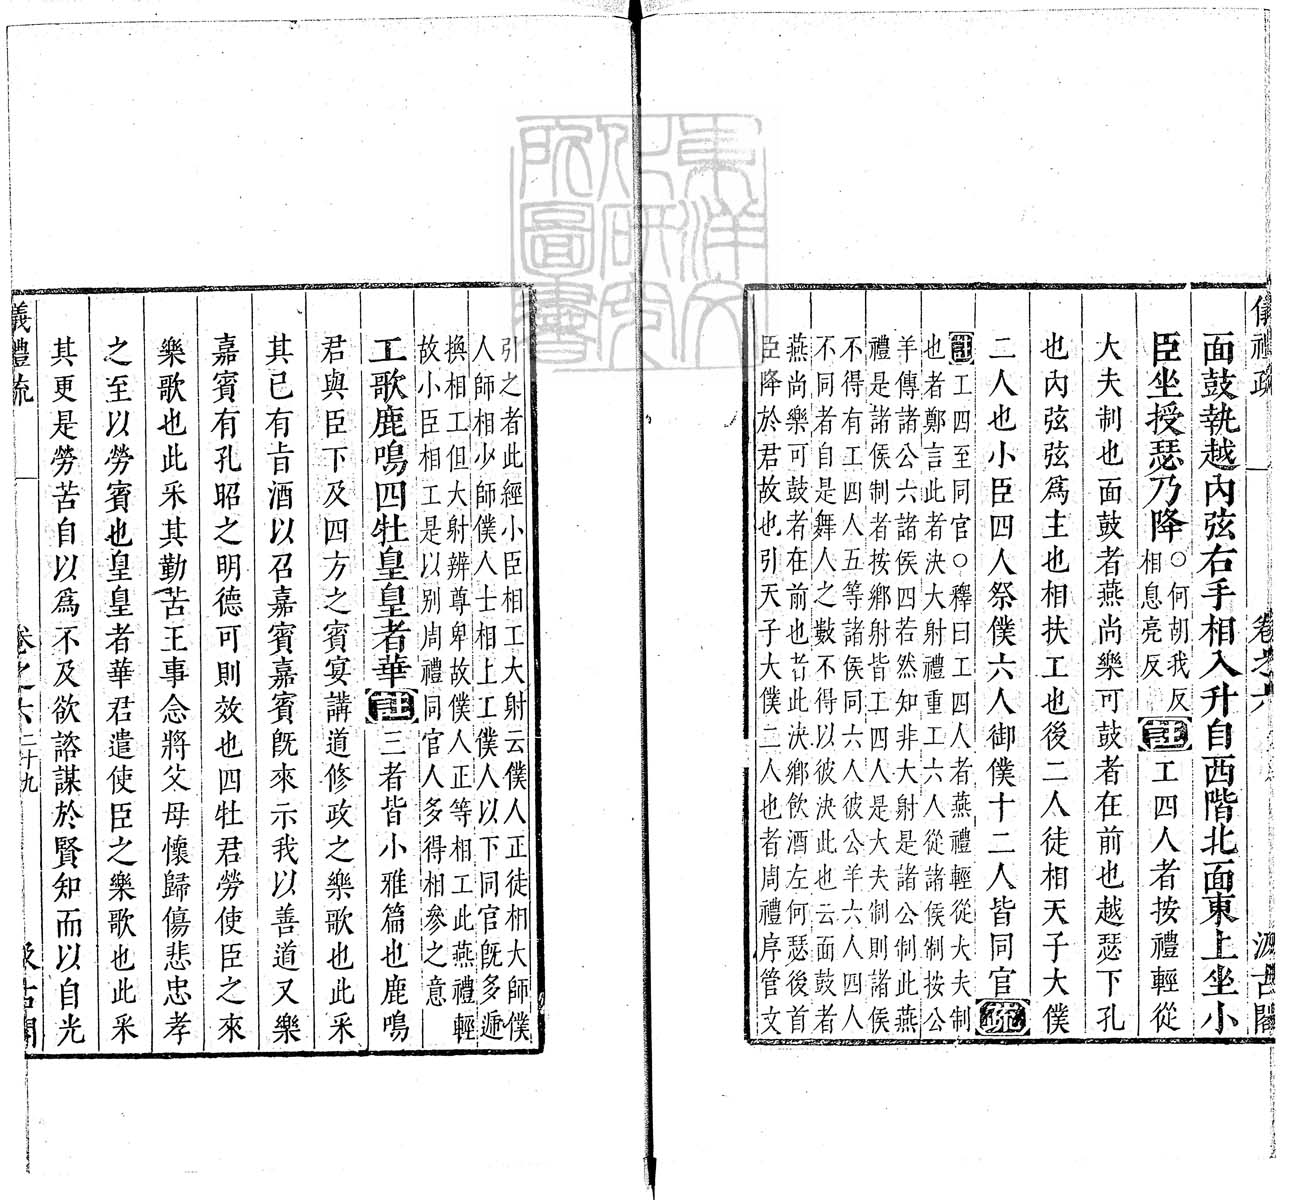 儀禮疏 卷之六 汲古閣
面鼓執越內弦右手相入升自西階北面東上坐小
臣坐授瑟乃降○何胡我反相息亮反註工四人者按禮輕從
大夫制也面鼓者燕尚樂可鼓者在前也越瑟下孔
也內弦弦爲主也相扶工也後二人徒相天子大僕
二人也小臣四人祭僕六人御僕十二人皆同官疏
註工四至同官○釋曰工四人者燕禮輕從大夫制
也者鄭言此者決大射禮重工六人從諸侯制按公
羊傳諸公六諸侯四若然知非大射是諸公制此燕
禮是諸侯制者按鄉射皆工四人是大夫制則諸侯
不得有工四人五等諸侯同六人彼公羊六人四人
不同者自是舞人之數不得以彼決此也云面鼓者
燕尚樂可鼓者在前也者此決鄉飲酒左何瑟後首
臣降於君故也引天子大僕二人也者周禮序管文
引之者此經小臣相工大射云僕人正徒相大師僕
人師相少師僕人士相上工僕人以下同官旣多遞
換相工但大射辨尊卑故僕人正等相工此燕禮輕
故小臣相工是以别周禮同官人多得相參之意
工歌鹿鳴四牡皇皇者華註三者皆小雅篇也鹿鳴
君與臣下及四方之賓宴講道修政之樂歌也此采
其已有旨酒以召嘉賓嘉賓旣來示我以善道又樂
嘉賓有孔昭之明德可則效也四牡君勞使臣之來
樂歌也此采其勤苦王事念將父母懷歸傷悲忠孝
之至以勞賓也皇皇者華君遣使臣之樂歌也此采
其更是勞苦自以爲不及欲諮謀於賢知而以自光
儀禮疏 卷之六 二十九 汲古閣